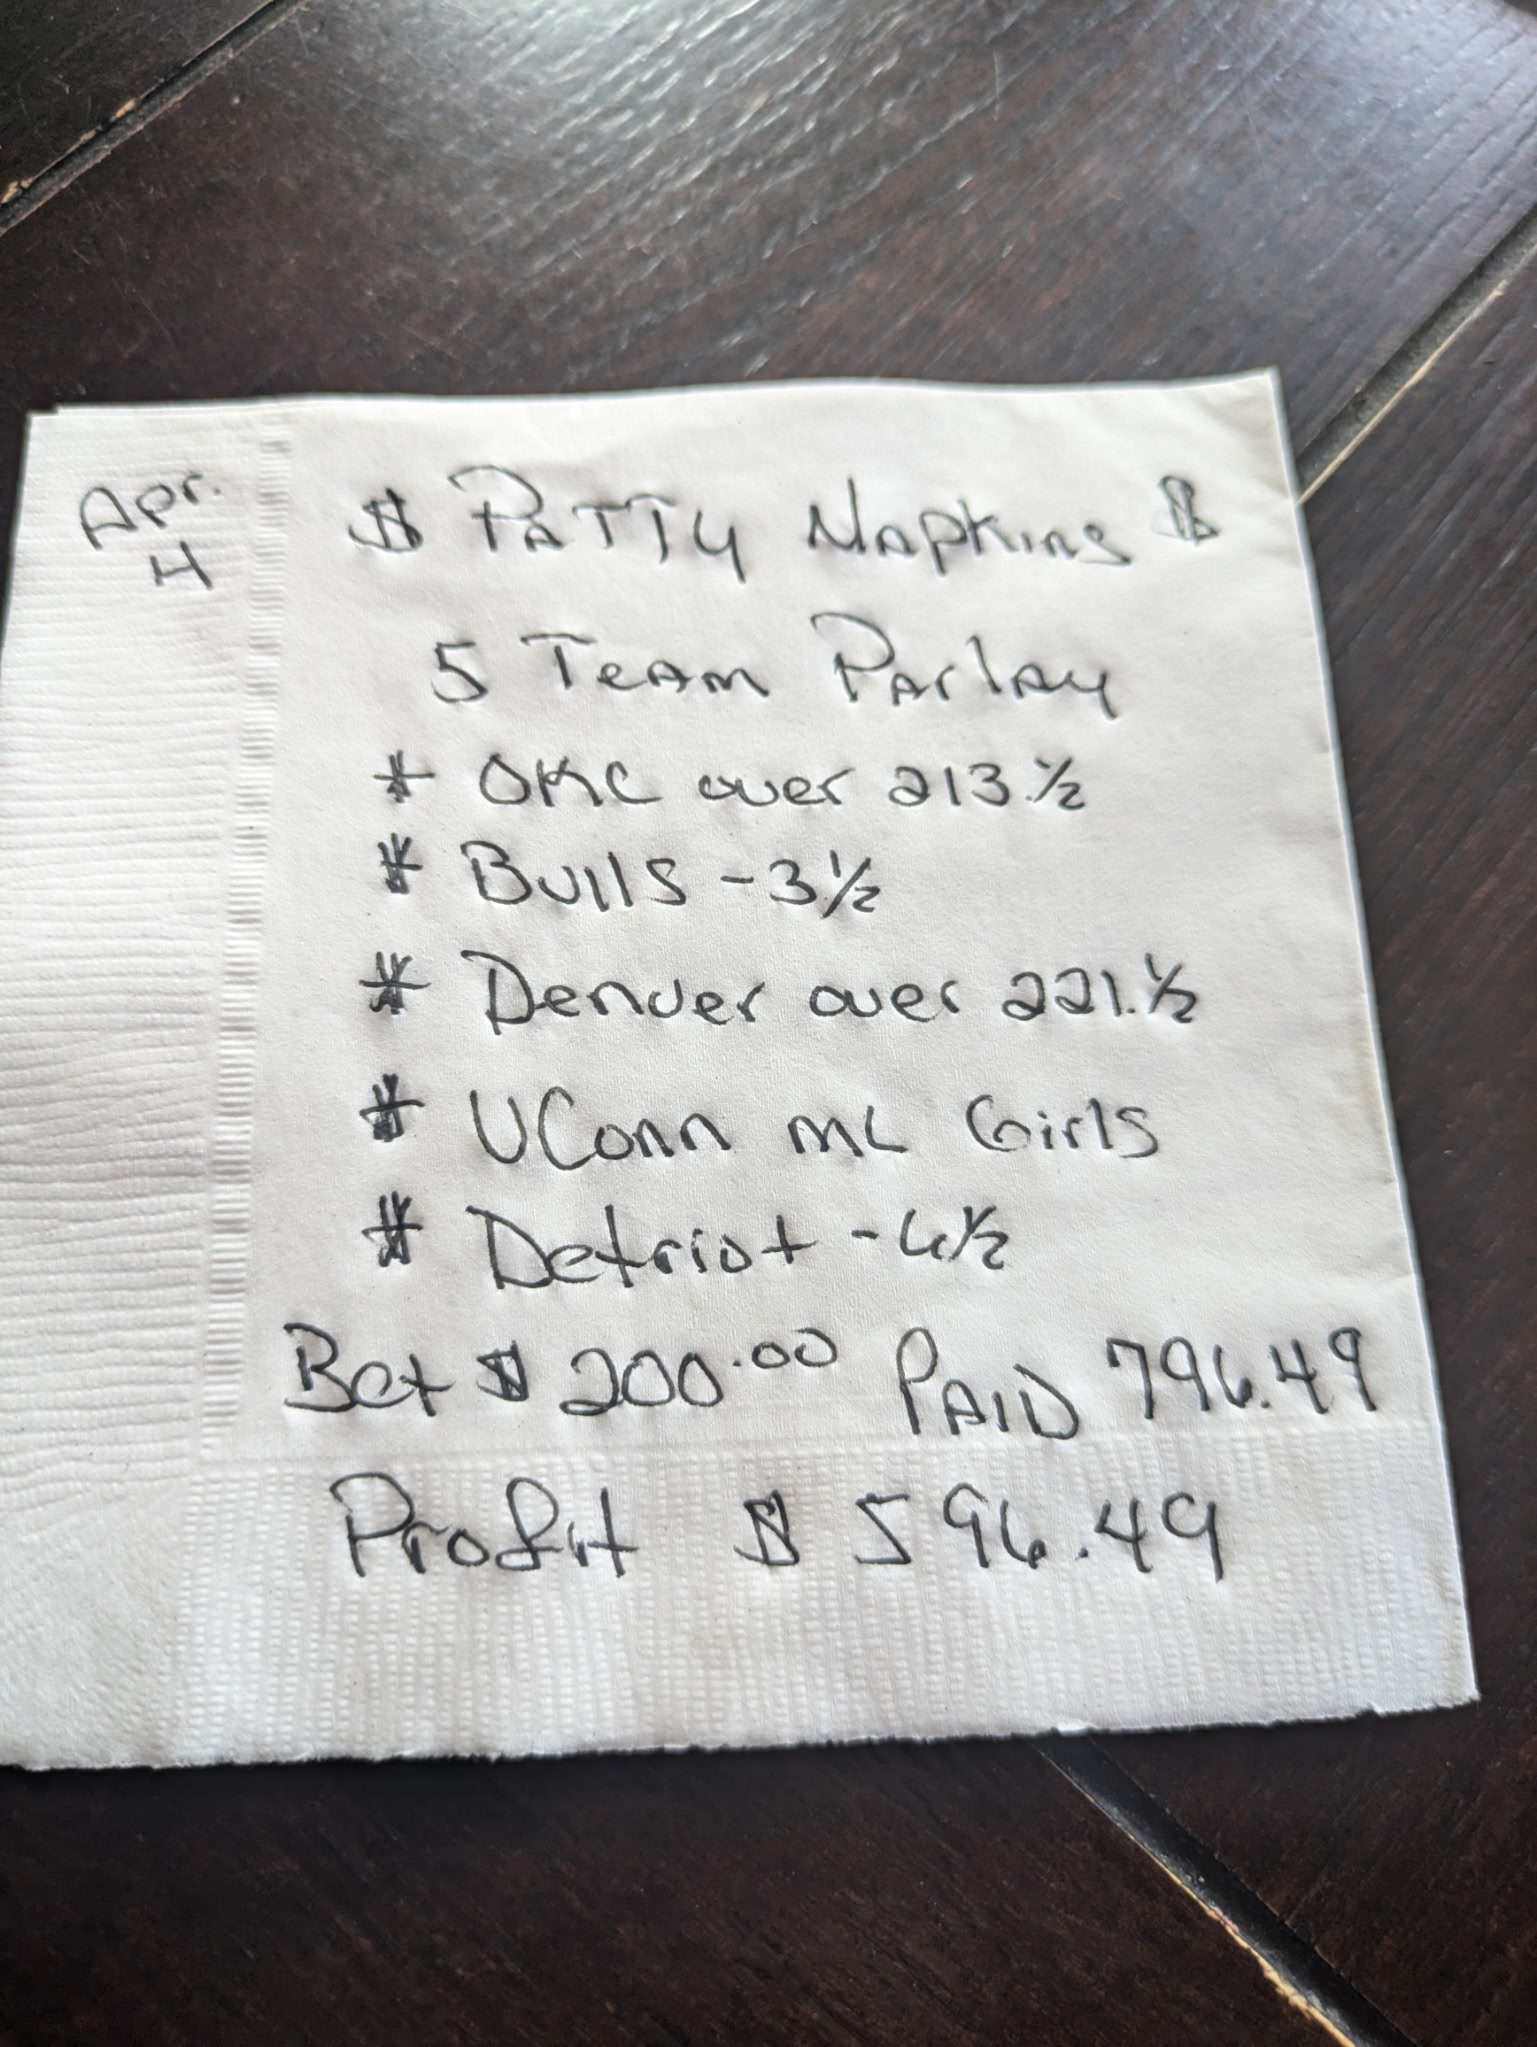 Apr.
4
$ PATTY NAPKINS $
5 Team Parlay
* OKC over 213.½
* Bulls -3½
* Denver over 221.½
* UConn ML Girls
* Detriot -6½
Bet $ 200.00 PAID 796.49
Profit $ 596.49